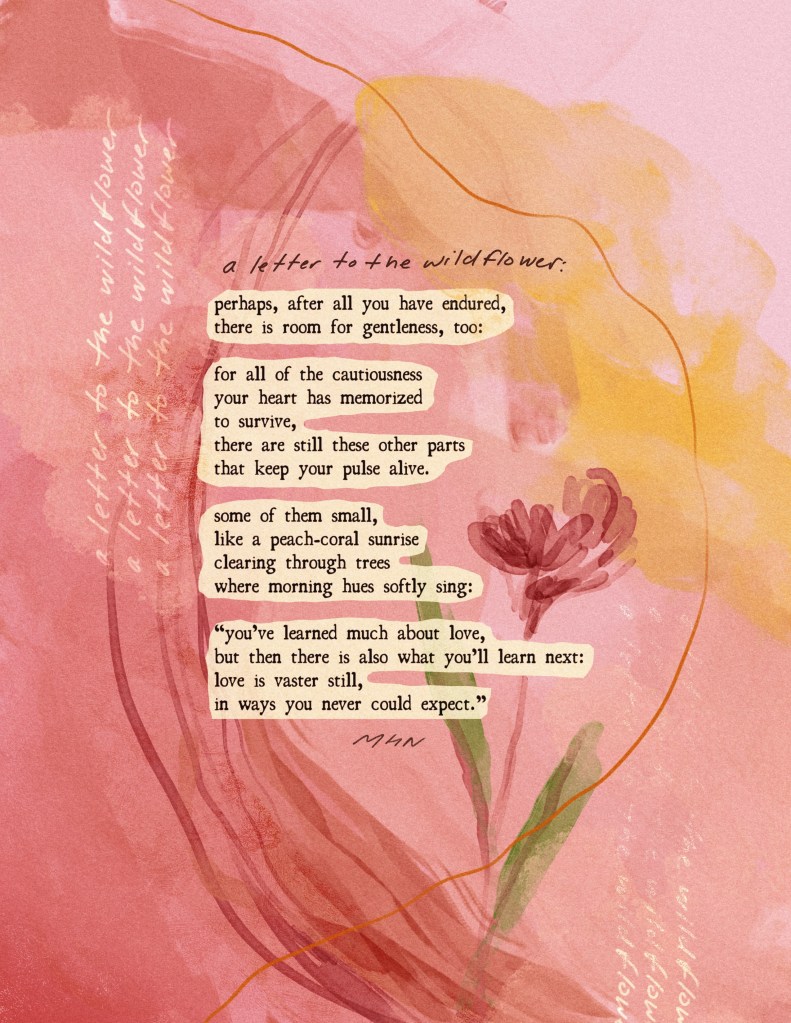 a letter to the wildflower:
perhaps, after all you have endured,
there is room for gentleness, too:
for all of the cautiousness
your heart has memorized
to survive,
there are still these other parts
that keep your pulse alive.
some of them small,
like a peach-coral sunrise
clearing through trees
where morning hues softly sing:
“you’ve learned much about love,
but then there is also what you’ll learn next:
love is vaster still,
in ways you never could expect.”
MHN
a letter to the wildflower
a letter to the wildflower
a letter to the wildflower